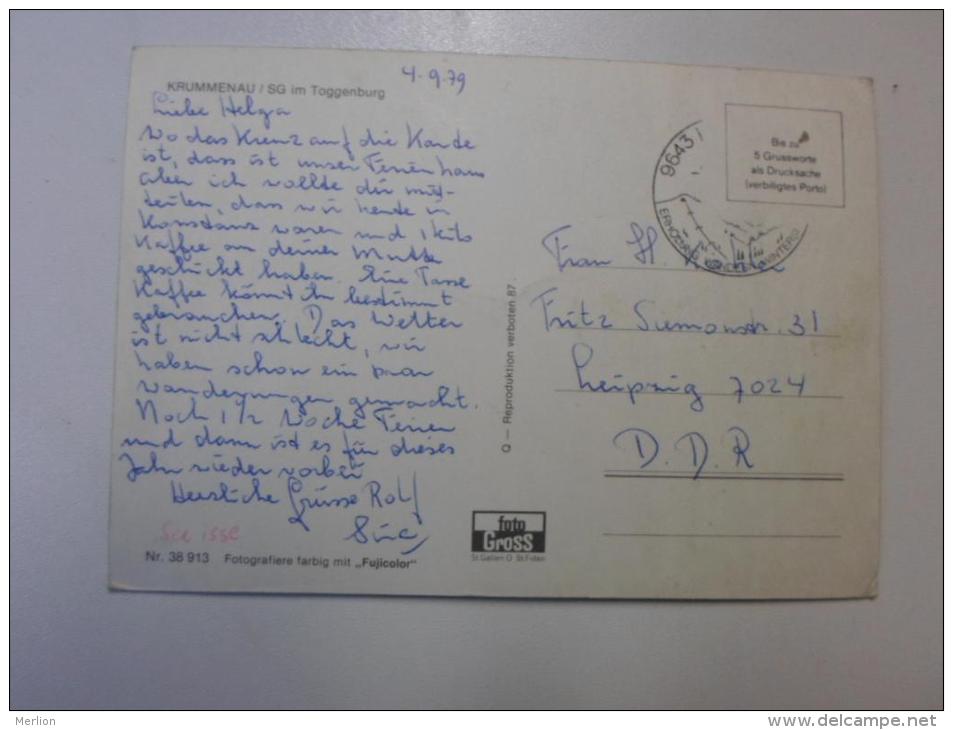 4.9.79
KRUMMENAU / SG im Toggenburg
Liebe Helga
Wo das Kreuz auf die Karte
ist, dass ist unser Ferienhaus
aber ich wollte dir mit-
teilen, dass wir heute in
Konstanz waren und 1 kilo
Kaffee an deiner Mutter
geschickt haben. Eine Tasse
Kaffee könnt ihr bestimmt
gebrauchen. Das Wetter
ist nicht schlecht, wir
haben schon ein paar
wanderungen gemacht.
Noch 1 1/2 Woche Ferien
und dann ist es für dieses
Jahr wieder vorbei
Herzliche Grüsse Rolf
Nr. 38 913 Fotografiere farbig mit „Fujicolor"
Q — Reproduktion verboten 87
foto
GROSS
St.Gallen O St.Fiden
9643
ERHOLUNG WINTERS
Bis zu
5 Grussworte
als Drucksache
(verbiligtes Porto)
Frau H.
Fritz Siemonstr. 31
Leipzig 7024
D.D.R
Merlion
www.delcampe.net